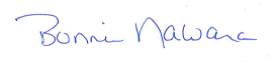 Bonnie Nawara